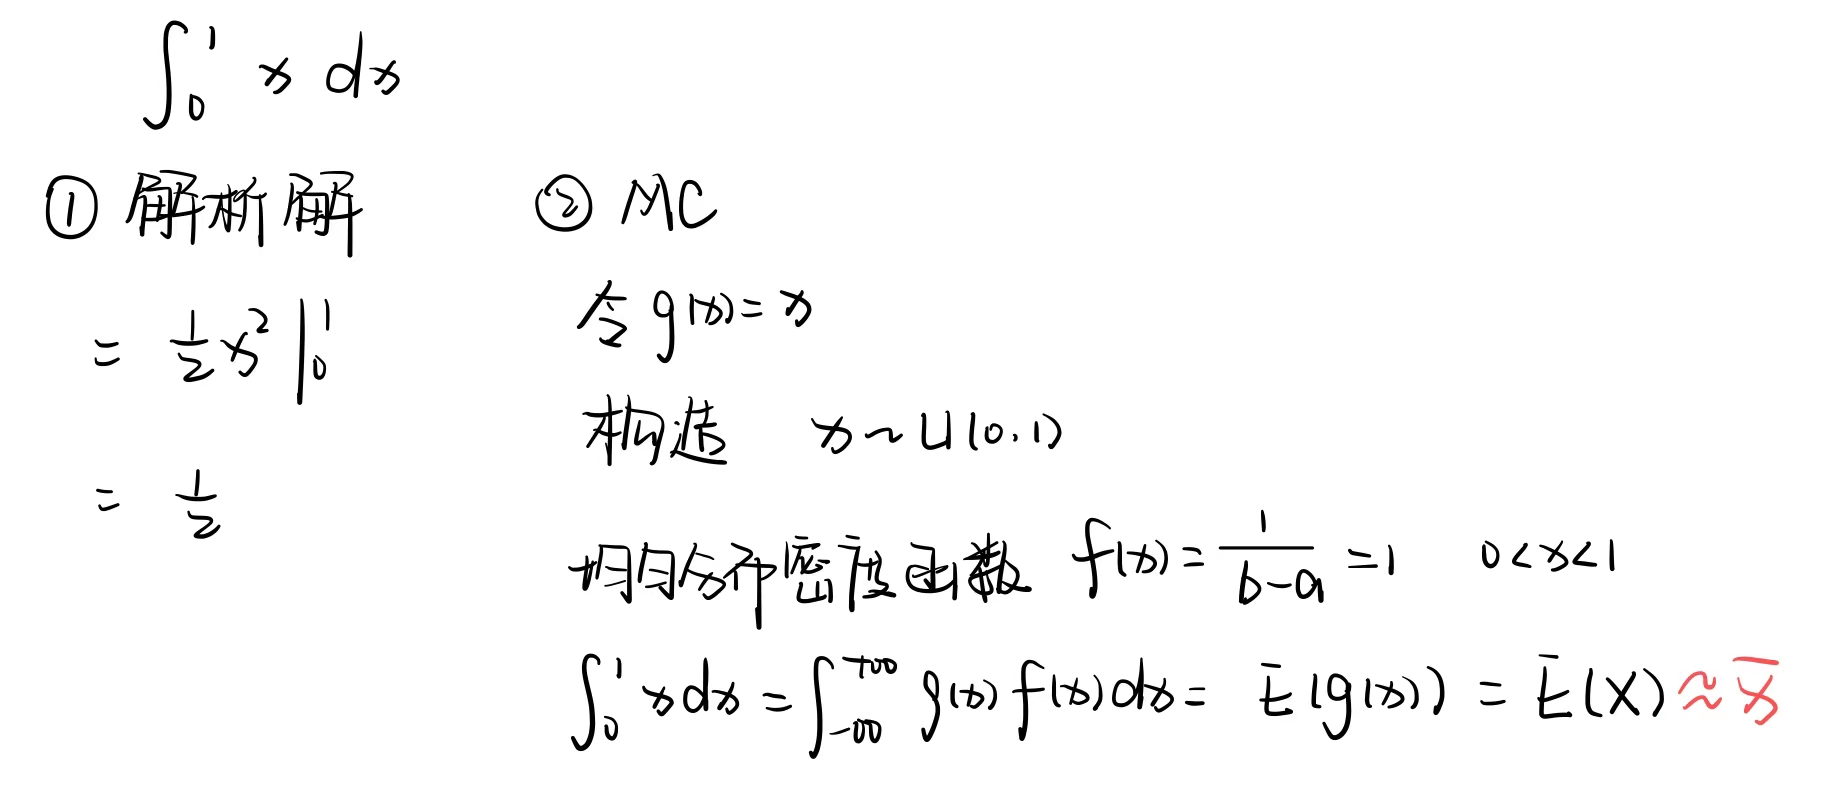 ∫₀¹ x dx
① 解析解
= ½x² |₀¹
= ½
② MC
令 g(x) = x
构造 x ~ U(0,1)
均匀分布密度函数 f(x) = 1/(b-a) = 1 0<x<1
∫₀¹ x dx = ∫₋∞⁺∞ g(x) f(x) dx = E(g(x)) = E(X) ≈ x̄